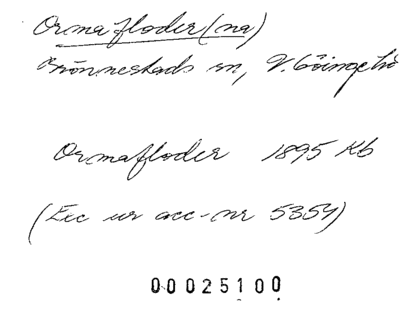 Ormafloder(na)
Brönnestads sn, V. Göinge hd
Ormafloder 1895 Kb
(Exc ur acc-nr 5354)
00025100